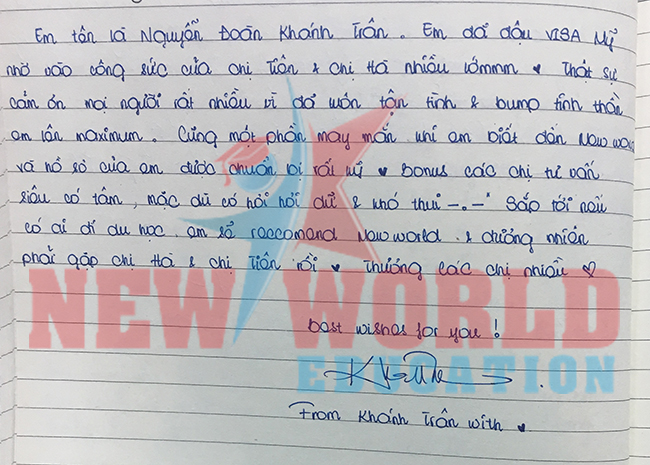 Em tên là Nguyễn Đoàn Khánh Trân. Em đã đậu VISA Mỹ
nhờ vào công sức của chị Tiên & chị Hà nhiều lémmm ♥ Thật sự
cảm ơn mọi người rất nhiều vì đã luôn tận tình & bump tinh thần
em lên maximum. Cũng một phần may mắn khi em biết đến New World
và hồ sơ của em được chuẩn bị rất kỹ ♥ Bonus các chị tư vấn
siêu có tâm, mặc dù có hơi hơi dữ & khó thui -.-" Sắp tới nếu
có ai đi du học em sẽ reccomend New World & đương nhiên
phải gặp chị Hà & chị Tiên rồi ♥ Thương các chị nhiều ♡
Best wishes for you!
From Khánh Trân with ♥
NEW WORLD
EDUCATION